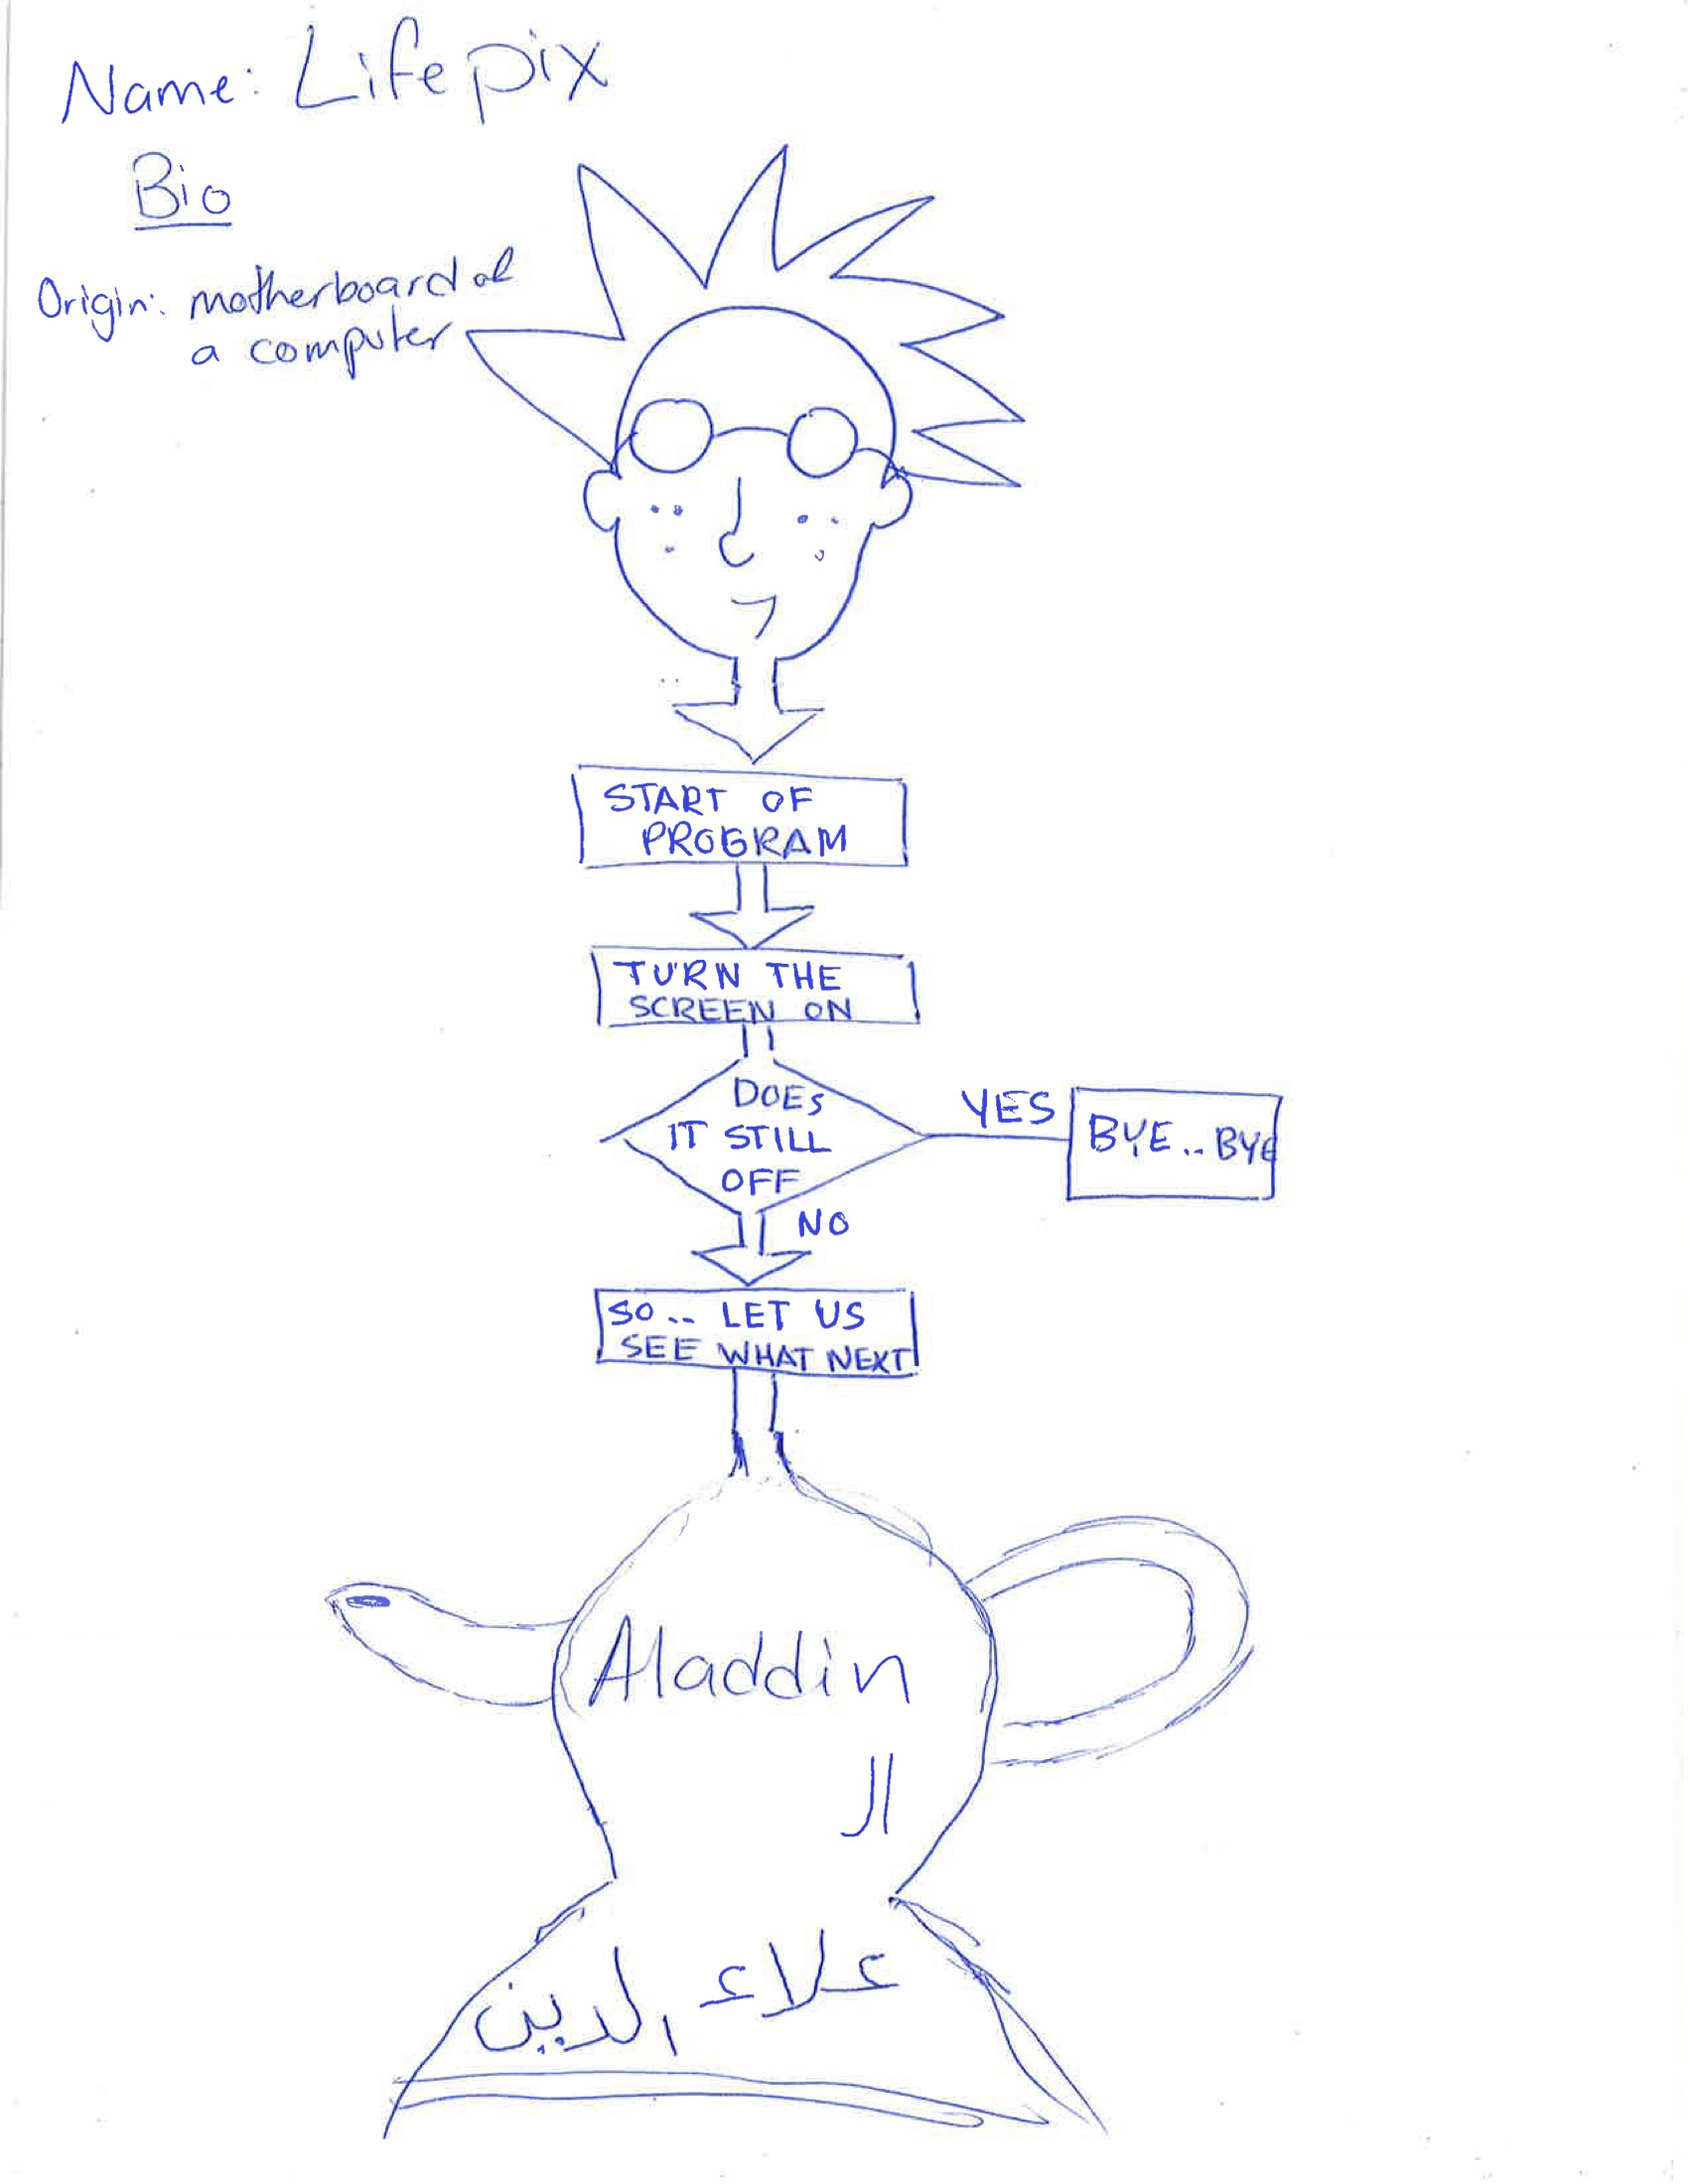 Name: Lifepix
Bio
Origin: motherboard of
a computer
START OF
PROGRAM
TURN THE
SCREEN ON
DOES
IT STILL
OFF
YES
BYE..BYE
NO
SO.. LET US
SEE WHAT NEXT
Aladdin
ال
علاء الدين